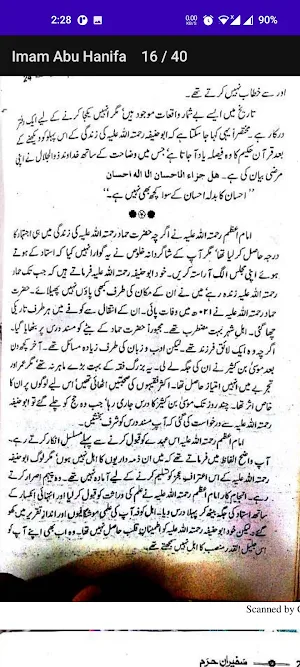 2:28
0.00 KB/S
90%
Imam Abu Hanifa 16 / 40
اور سے خطاب نہیں کرتے تھے۔
تاریخ میں ایسے بے شمار واقعات موجود ہیں مگر انہیں یکجا کرنے کے لیے ایک دفتر
درکار ہے۔ مختصراً یہی کہا جا سکتا ہے کہ ابوحنیفہ رحمتہ اللہ علیہ کی زندگی کے اس پہلو کو دیکھنے کے
بعد قرآن حکیم کا وہ فیصلہ یاد آجاتا ہے جس میں وضاحت کے ساتھ خداوند ذوالجلال نے اپنی
مرضی بیان کی ہے۔ هل جزاء الاحسان الا اله احسان
’’احسان کا بدلہ احسان کے سوا کچھ بھی نہیں ہے۔‘‘
امام اعظم رحمتہ اللہ علیہ نے اگرچہ حضرت حماد رحمتہ اللہ علیہ کی زندگی میں ہی اجتہاد کا
درجہ حاصل کر لیا تھا مگر آپ کے شاگردانہ خلوص نے یہ گوارا نہیں کیا کہ استاد کے ہوتے
ہوئے اپنی مجلس الگ آراستہ کریں۔ خود ابوحنیفہ رحمتہ اللہ علیہ فرماتے ہیں کہ جب تک حماد
رحمتہ اللہ علیہ زندہ رہے میں نے ان کے مکان کی طرف بھی پاؤں نہیں پھیلائے۔ حضرت
حماد رحمتہ اللہ علیہ نے ۰۲۱ھ میں وفات پائی۔ ان کے انتقال سے کوفے میں ہر طرف تاریکی
چھا گئی۔ اہل شہر بہت مضطرب تھے۔ مجبوراً حضرت حماد کے بیٹے کو مسند درس پر بٹھایا گیا۔
اگرچہ وہ ایک لائق فرزند تھے۔ لیکن ادب و زبان کی طرف زیادہ مسائل تھے۔ آخر کچھ دن
بعد موسیٰ بن کثیر نے ان کی جگہ لے لی۔ یہ بزرگ فقہ کے بہت بڑے ماہر نہ تھے مگر عمر اور
تجربے میں انہیں امتیاز حاصل تھا۔ اکثر فقیہوں کی صحبتیں اٹھائی تھیں اس لیے لوگوں پر ان کا
خاص اثر تھا۔ چند روز تک موسیٰ بن کثیر کا درس جاری رہا۔ جب وہ حج کو چلے گئے تو ابوحنیفہ
رحمتہ اللہ علیہ سے درخواست کی گئی کہ آپ مسند درس کو شرف بخشیں۔
امام اعظم رحمتہ اللہ علیہ اس عہدے کو قبول کرنے سے پہلے مسلسل انکار کرتے رہے۔
آپ واضح الفاظ میں فرماتے تھے کہ میں ان ذمہ داریوں کا اہل نہیں ہوں مگر لوگ ابوحنیفہ
رحمتہ اللہ علیہ کے اس اعتراف عجز کو تسلیم کرنے کے لیے آمادہ نہیں تھے۔ وہ پیہم اصرار کرتے
رہے۔ انجام کار امام اعظم رحمتہ اللہ علیہ نے علم کی وراثت کو قبول کر لیا اور انتہائی انکسار کے
ساتھ استاد کی جگہ بیٹھ کر پہلا درس دیا۔ اہل کوفہ آپ کی علمی موشگافیوں اور انداز تقریر میں کھو
گئے لیکن خود ابوحنیفہ رحمتہ اللہ علیہ کو اطمینان قلب حاصل نہیں تھا۔ وہ اب بھی اپنے آپ کو
اس جلیل القدر منصب کا اہل نہیں سمجھتے تھے۔
Scanned by
سفیران حرم